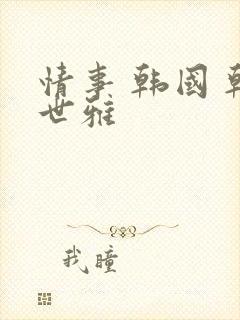 情事 韩国 韩
世雅
我瞳